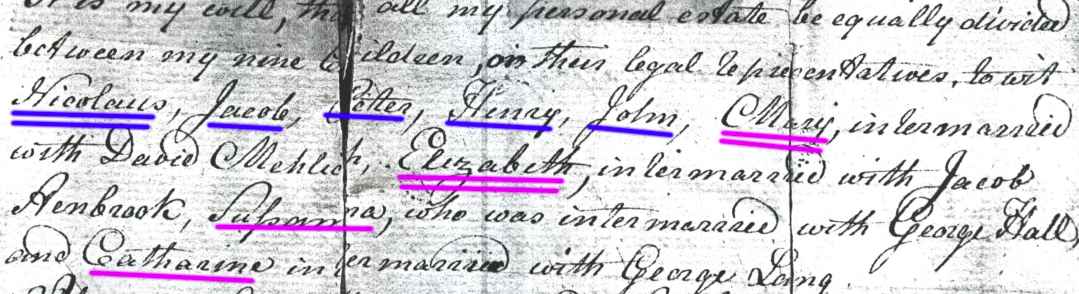 It is my will, that all my personal estate be equally divided
between my nine Children, or their legal representatives, to wit
Nicolaus, Jacob, Peter, Henry, John, Mary, intermarried
with David Mehlich, Elizabeth, intermarried with Jacob
Henbrook, Susanna, who was intermarried with George Hall,
and Catharine intermarried with George Lang.